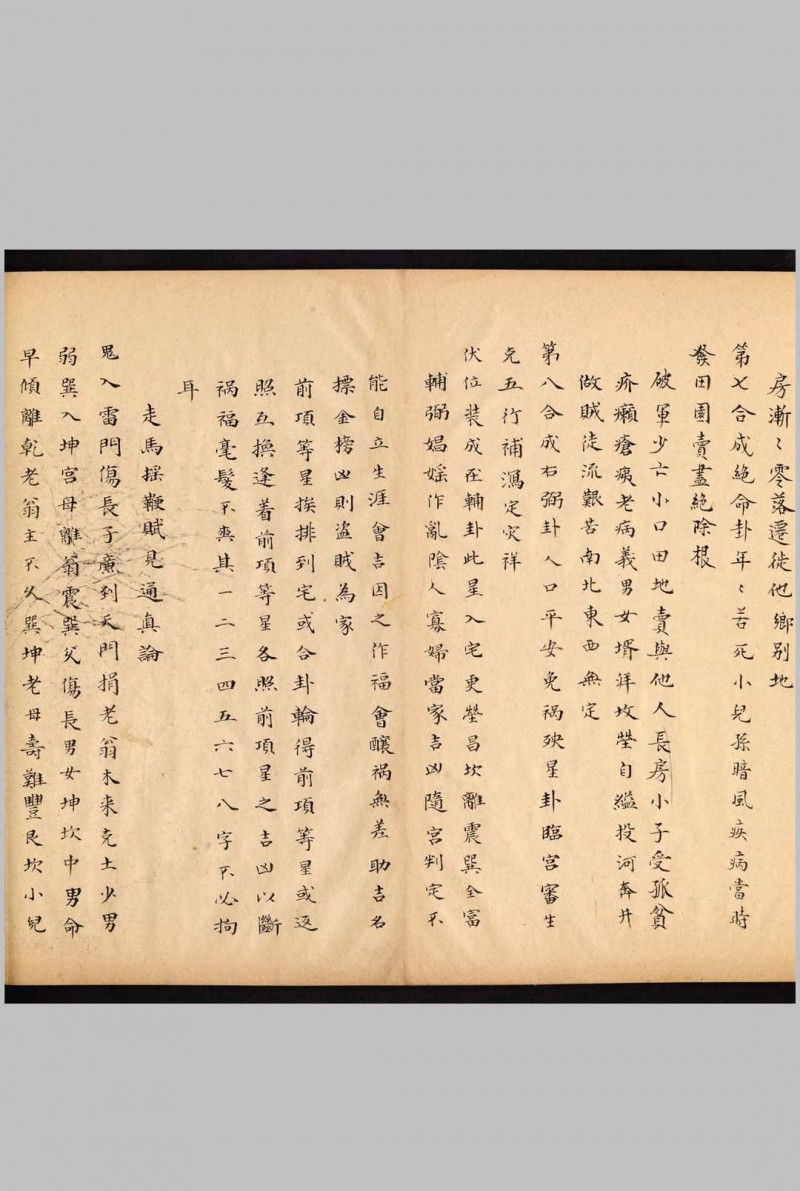 房漸〻零落遷徙他鄉别地
第七合成絶命卦年〻苦死小兒孫暗風疾病當時
發田園賣盡絶除根
破軍少亡小口田地賣與他人長房小子受孤貧
疥癩瘡痍老病義男女壻拜坟塋自縊投河奔井
做賊徒流艱苦南北東西無定
第八合成右弼卦人口平安免禍殃星卦臨宫審生
克五行補瀉定灾祥
伏位装成在輔卦此星入宅更塋昌坎離震巽全富
輔弼娼婬作亂陰人寡婦當家吉凶隨宫判定不
能自立生涯會吉因之作福會釀禍無差助吉名
摽金榜凶則盗賊為家
前項等星挨排到宅或合卦輪得前項等星或返
照互換逢着前項等星各照前項星之吉凶以斷
禍福毫髮不爽其一二三四五六七八字不必拘
耳
走馬揺鞭賦見通真論
鬼入雷門傷長子 到天門損老翁木来克土少男
弱巽入坤宫母離翁震巽 傷長男女坤坎中男命
早傾離乾老翁主不久巽坤老母壽難豐艮坎小兒